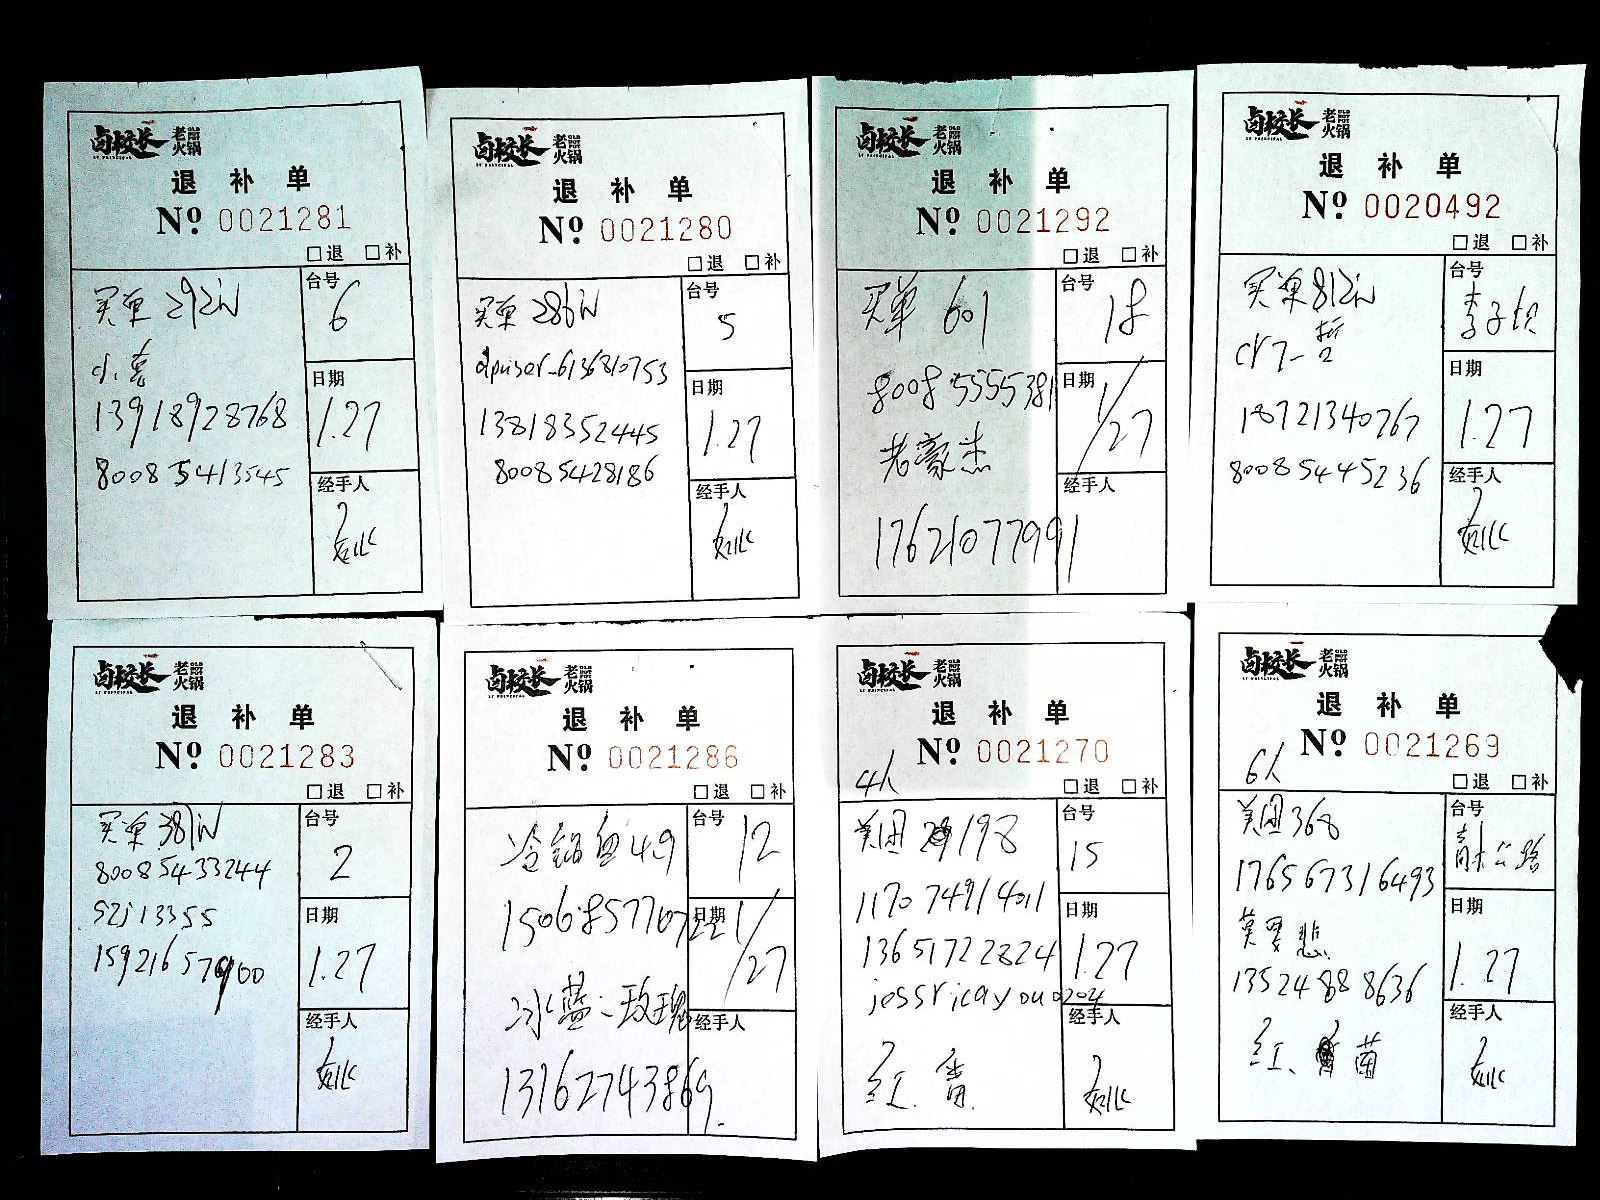 卤校长 老火锅
LU PRINCIPAL
OLD HOT POT
退 补 单
Nº 0021281
□退 □补
买单 292
台号
6
小
13918928768
日期
1.27
80085413545
经手人
卤校长 老火锅
退 补 单
Nº 0021280
□退 □补
买单 286
台号
5
dpuser-6136810753
日期
1.27
13818352445
80085428186
经手人
卤校长 老火锅
退 补 单
Nº 0021292
□退 □补
买单 601
台号
18
80085555381
日期
1/27
老豪杰
经手人
17621077991
卤校长 老火锅
退 补 单
Nº 0020492
□退 □补
买单 812
台号
李子坝
日期
1.27
18721340767
80085445236
经手人
卤校长 老火锅
LU PRINCIPAL
退 补 单
Nº 0021283
□退 □补
买单 381
台号
2
80085433244
szj13355
日期
1.27
15921657900
经手人
卤校长 老火锅
LU PRINCIPAL
退 补 单
Nº 0021286
□退 □补
冷锅鱼 49
台号
12
日期
1/27
冰蓝、玫瑰
经手人
13162743869
卤校长 老火锅
LU PRINCIPAL
退 补 单
Nº 0021270
4人
□退 □补
美团 198
台号
15
117074914011
日期
1.27
13651722824
jessricayou0204
经手人
红、番
卤校长 老火锅
LU PRINCIPAL
退 补 单
Nº 0021269
6人
□退 □补
美团 368
台号
176567316493
日期
1.27
莫要悲
13524888636
经手人
红、菌